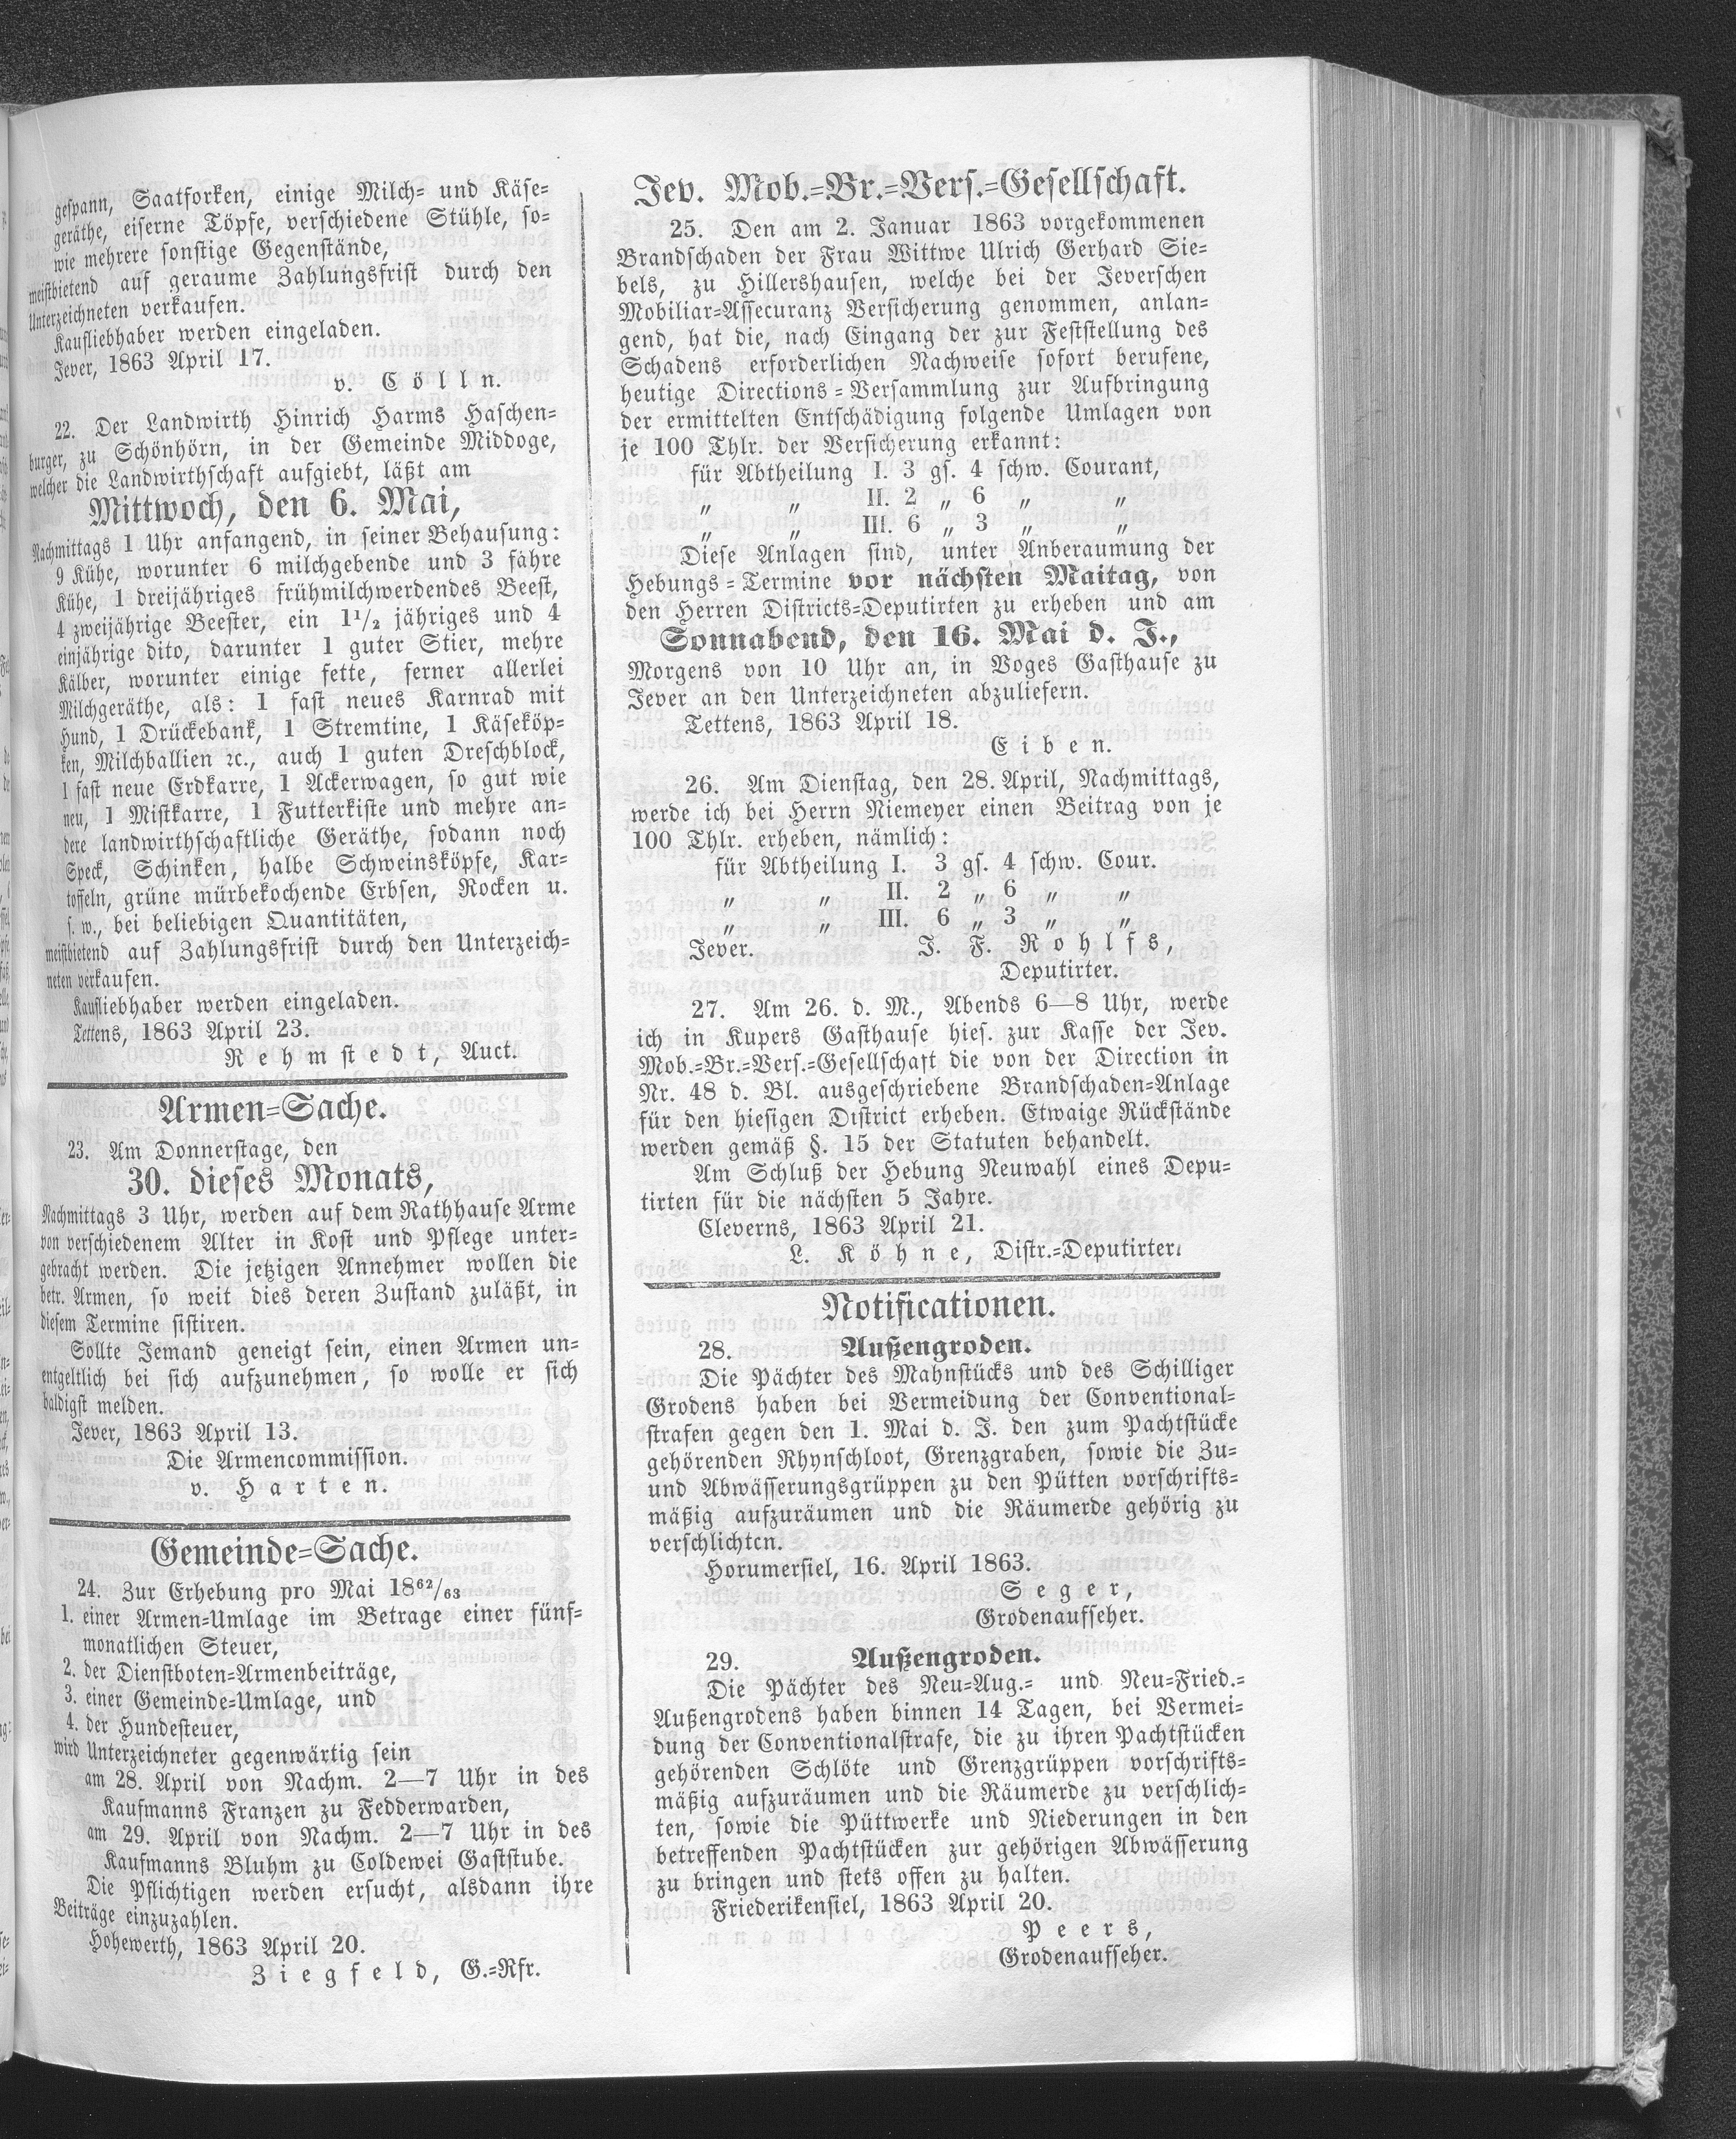 gespann, Saatforken, einige Milch- und Käse-
geräthe, eiserne Töpfe, verschiedene Stühle, so-
wie mehrere sonstige Gegenstände,
meistbietend auf geraume Zahlungsfrist durch den
Unterzeichneten verkaufen.
Kaufliebhaber werden eingeladen.
Jever, 1863 April 17.
v. Cölln.
22. Der Landwirth Hinrich Harms Haschen-
burger, zu Schönhörn, in der Gemeinde Middoge,
welcher die Landwirthschaft aufgiebt, läßt am
Mittwoch, den 6. Mai,
Nachmittags 1 Uhr anfangend, in seiner Behausung:
9 Kühe, worunter 6 milchgebende und 3 fähre
Kühe, 1 dreijähriges frühmilchwerdendes Beest,
4 zweijährige Beester, ein 1½ jähriges und 4
einjährige dito, darunter 1 guter Stier, mehre
Kälber, worunter einige fette, ferner allerlei
Milchgeräthe, als: 1 fast neues Karnrad mit
Hund, 1 Drückebank, 1 Stremtine, 1 Käseköp-
ken, Milchballien ꝛc., auch 1 guten Dreschblock,
1 fast neue Erdkarre, 1 Ackerwagen, so gut wie
neu, 1 Mistkarre, 1 Futterkiste und mehre an-
dere landwirthschaftliche Geräthe, sodann noch
Speck, Schinken, halbe Schweinsköpfe, Kar-
toffeln, grüne mürbekochende Erbsen, Rocken u.
s. w., bei beliebigen Quantitäten,
meistbietend auf Zahlungsfrist durch den Unterzeich-
neten verkaufen.
Kaufliebhaber werden eingeladen.
Tettens, 1863 April 23.
Rehmstedt, Auct.
Armen-Sache.
23. Am Donnerstage, den
30. dieses Monats,
Nachmittags 3 Uhr, werden auf dem Rathhause Arme
von verschiedenem Alter in Kost und Pflege unter-
gebracht werden. Die jetzigen Annehmer wollen die
betr. Armen, so weit dies deren Zustand zuläßt, in
diesem Termine sistiren.
Sollte Jemand geneigt sein, einen Armen un-
entgeltlich bei sich aufzunehmen, so wolle er sich
baldigst melden.
Jever, 1863 April 13.
Die Armencommission.
v. Harten.
Gemeinde-Sache.
24. Zur Erhebung pro Mai 18⁶²/₆₃
1. einer Armen-Umlage im Betrage einer fünf-
monatlichen Steuer,
2. der Dienstboten-Armenbeiträge,
3. einer Gemeinde-Umlage, und
4. der Hundesteuer,
wird Unterzeichneter gegenwärtig sein
am 28. April von Nachm. 2—7 Uhr in des
Kaufmanns Franzen zu Fedderwarden,
am 29. April von Nachm. 2—7 Uhr in des
Kaufmanns Bluhm zu Coldewei Gaststube.
Die Pflichtigen werden ersucht, alsdann ihre
Beiträge einzuzahlen.
Hohewerth, 1863 April 20.
Ziegfeld, G.-Rfr.
Jev. Mob.-Br.-Vers.-Gesellschaft.
25. Den am 2. Januar 1863 vorgekommenen
Brandschaden der Frau Wittwe Ulrich Gerhard Sie-
bels, zu Hillershausen, welche bei der Jeverschen
Mobiliar-Assecuranz Versicherung genommen, anlan-
gend, hat die, nach Eingang der zur Feststellung des
Schadens erforderlichen Nachweise sofort berufene,
heutige Directions-Versammlung zur Aufbringung
der ermittelten Entschädigung folgende Umlagen von
je 100 Thlr. der Versicherung erkannt:
für Abtheilung I. 3 gs. 4 schw. Courant,
" " II. 2 " 6 " "
" " III. 6 " 3 " "
Diese Anlagen sind, unter Anberaumung der
Hebungs-Termine vor nächsten Maitag, von
den Herren Districts-Deputirten zu erheben und am
Sonnabend, den 16. Mai d. J.,
Morgens von 10 Uhr an, in Voges Gasthause zu
Jever an den Unterzeichneten abzuliefern.
Tettens, 1863 April 18.
Eiben.
26. Am Dienstag, den 28. April, Nachmittags,
werde ich bei Herrn Niemeyer einen Beitrag von je
100 Thlr. erheben, nämlich:
für Abtheilung I. 3 gs. 4 schw. Cour.
" " II. 2 " 6 " "
" " III. 6 " 3 " "
Jever. J. F. Rohlfs,
Deputirter.
27. Am 26. d. M., Abends 6—8 Uhr, werde
ich in Kupers Gasthause hies. zur Kasse der Jev.
Mob.-Br.-Vers.-Gesellschaft die von der Direction in
Nr. 48 d. Bl. ausgeschriebene Brandschaden-Anlage
für den hiesigen District erheben. Etwaige Rückstände
werden gemäß §. 15 der Statuten behandelt.
Am Schluß der Hebung Neuwahl eines Depu-
tirten für die nächsten 5 Jahre.
Cleverns, 1863 April 21.
L. Köhne, Distr.-Deputirter.
Notificationen.
28. Außengroden.
Die Pächter des Mahnstücks und des Schilliger
Grodens haben bei Vermeidung der Conventional-
strafen gegen den 1. Mai d. J. den zum Pachtstücke
gehörenden Rhynschloot, Grenzgraben, sowie die Zu-
und Abwässerungsgrüppen zu den Pütten vorschrifts-
mäßig aufzuräumen und die Räumerde gehörig zu
verschlichten.
Horumersiel, 16. April 1863.
Seger,
Grodenaufseher.
29. Außengroden.
Die Pächter des Neu-Aug.- und Neu-Fried.-
Außengrodens haben binnen 14 Tagen, bei Vermei-
dung der Conventionalstrafe, die zu ihren Pachtstücken
gehörenden Schlöte und Grenzgrüppen vorschrifts-
mäßig aufzuräumen und die Räumerde zu verschlich-
ten, sowie die Püttwerke und Niederungen in den
betreffenden Pachtstücken zur gehörigen Abwässerung
zu bringen und stets offen zu halten.
Friederikensiel, 1863 April 20.
Peers,
Grodenaufseher.